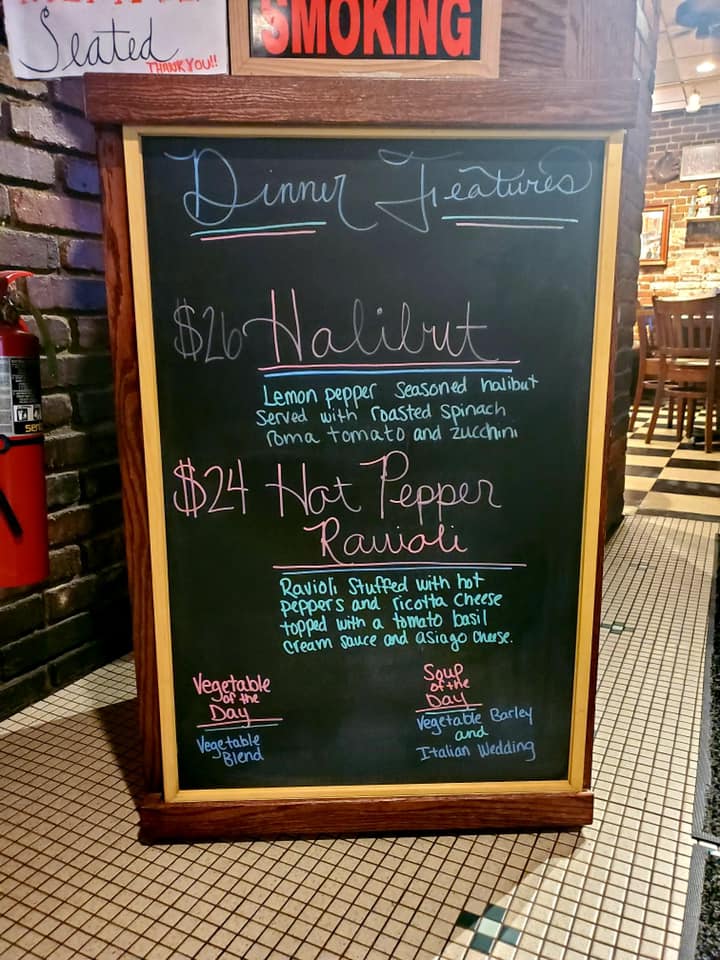 Seated
THANK YOU!!
SMOKING
Dinner Features
$26 Halibut
Lemon pepper seasoned halibut
served with roasted spinach
roma tomato and zucchini
$24 Hot Pepper
Ravioli
Ravioli stuffed with hot
peppers and ricotta cheese
topped with a tomato basil
cream sauce and asiago cheese.
Vegetable
of the
Day
Vegetable
Blend
Soup
of the
Day
Vegetable Barley
and
Italian Wedding